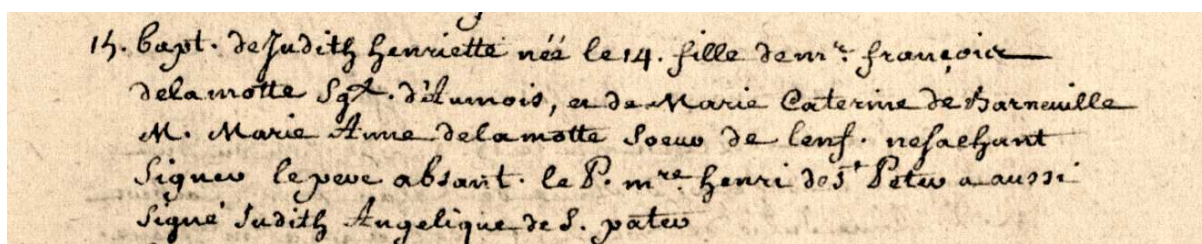 15. bapt. de Judith henriette née le 14. fille de mr. françois
delamotte Sgr. d'Aumois, et de Marie Caterine de Barneville
M. Marie Anne delamotte Soeur de lenf. nesachant
Signer le pere absant. le P. mre. henri de St Peter a aussi
Signé Judith Angelique de S. pater